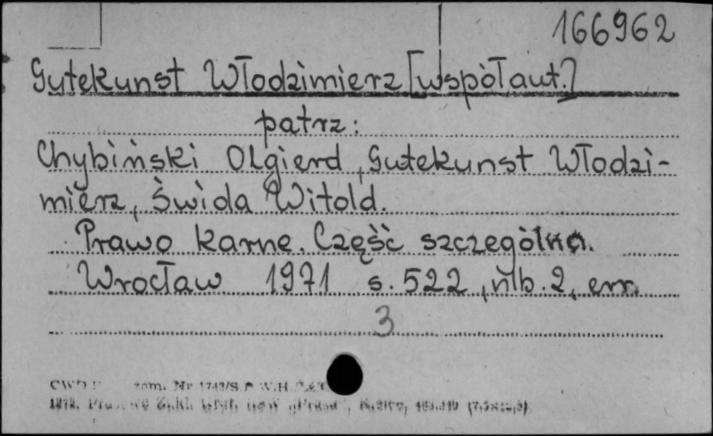 166962
Gutekunst Włodzimierz [współaut.]
patrz:
Chybiński Olgierd, Gutekunst Włodzi-
mierz, Świda Witold.
Prawo karne. Część szczególna.
Wrocław 1971 s. 522, nlb. 2, err.
3
zam. Nr